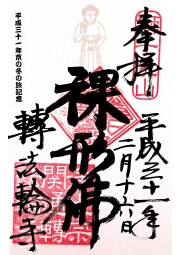 奉拝
平成三十一年
二月十六日
裸形佛
轉法輪寺
平成三十一年京の冬の旅記念
開運